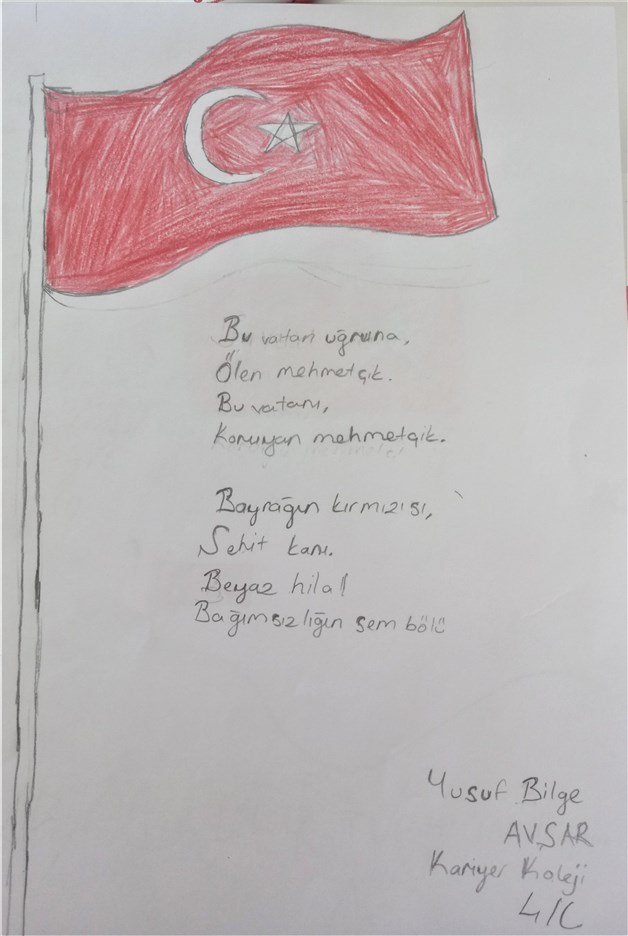 Bu vatan uğruna,
Ölen mehmetçik.
Bu vatanı,
Koruyan mehmetçik.
Bayrağın kırmızısı,
Şehit kanı.
Beyaz hilal
Bağımsızlığın sembölü
Yusuf Bilge
AVŞAR
Kariyer Koleji
4/C